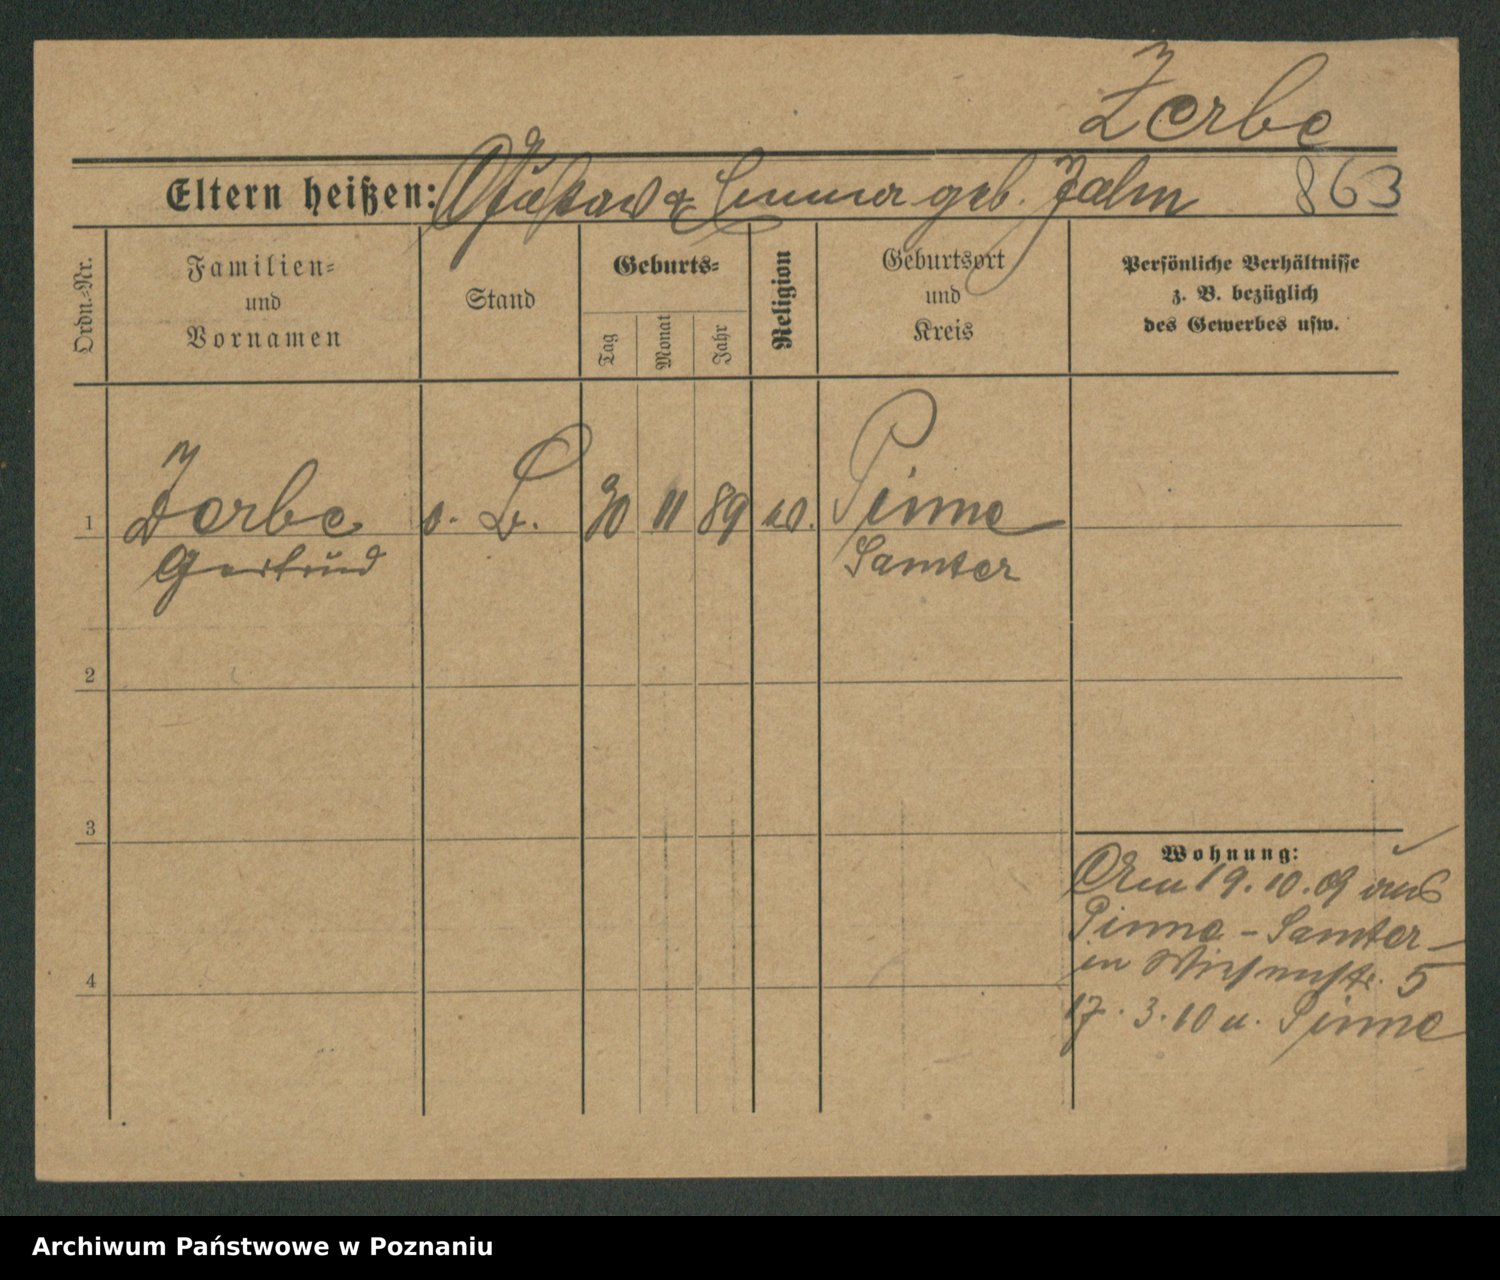 Zerbe
Eltern heißen: Gustav & Emma geb. Jahn 863
Ordn.=Nr.
Familien=
und
Vornamen
Stand
Geburts=
Tag
Monat
Jahr
Religion
Geburtsort
und
Kreis
Persönliche Verhältnisse
z. B. bezüglich
des Gewerbes usw.
1 Zerbe o. B. 30 11 89 ev. Pinne
Gertrud Samter
2
3
Wohnung:
Am 19.10.09 aus
Pinne - Samter -
in Wiesenstr. 5
17.3.10 n. Pinne
4
Archiwum Państwowe w Poznaniu